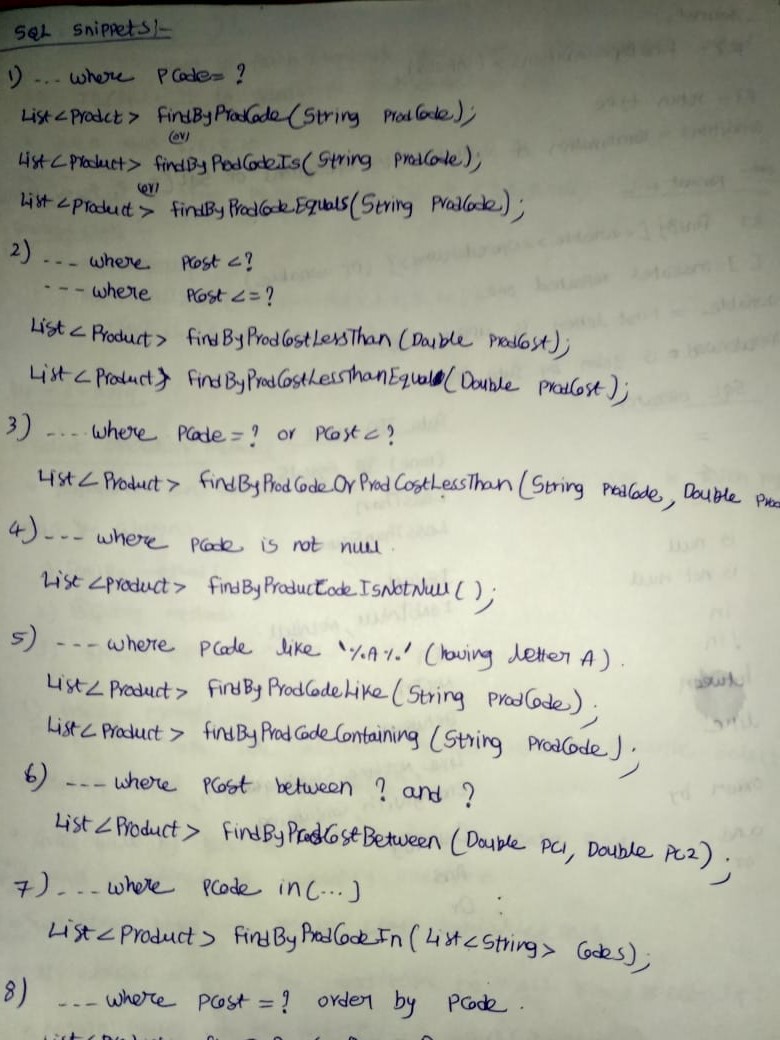 SQL Snippets:-
1) ... where PCode= ?
List<Prodct> findByProdCode(String ProdCode);
(or)
List<Product> findByPodCodeIs(String prodCode);
(or)
List<product> findByProdCodeEquals(String ProdCode);
2) --- where PCost <?
--- where PCost <=?
List<Product> findByProdCostLessThan(Double ProdCost);
List<Product> findByProdCostLessThanEqual(Double ProdCost);
3) .... where PCode = ? or PCost < ?
List<Product> findByProdCodeOrProdCostLessThan(String ProdCode, Double
4) --- where PCode is not null.
List<product> findByProductCodeIsNotNull();
5) --- where PCode like '%A%' (having letter A).
List<Product> findByProdCodeLike(String prodCode);
List<Product> findByProdCodeContaining(String ProdCode);
6) --- where PCost between ? and ?
List<Product> findByProdCostBetween(Double PC1, Double PC2);
7) ... where PCode in(...)
List<Product> findByProdCodeIn(List<String> Codes);
8) --- where PCost = ? order by PCode.